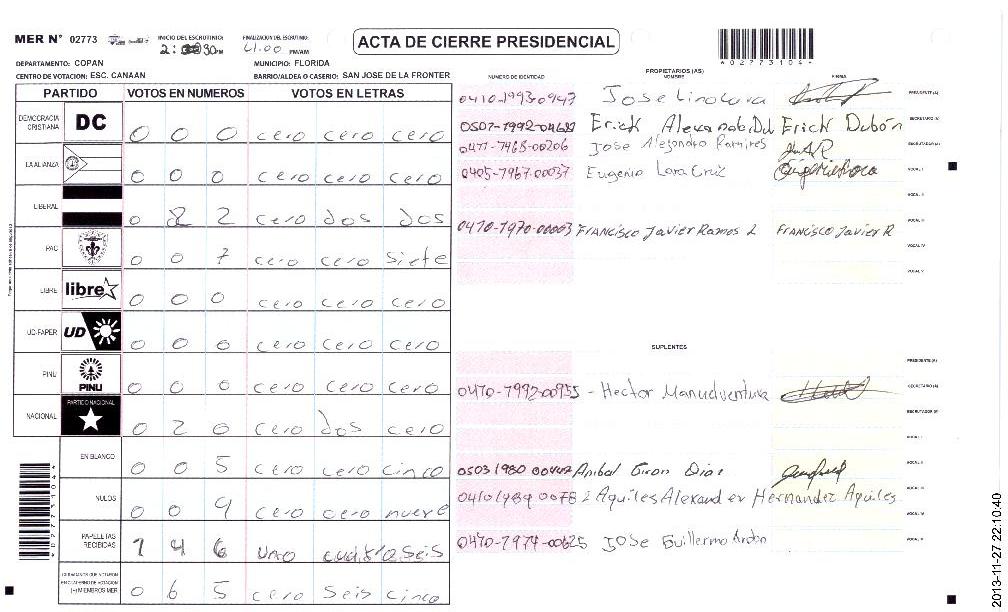 MER Nº 02773
INICIO DEL ESCRUTINIO:
FINALIZACION DEL ESCRUTINIO:
4:00 PM/AM
ACTA DE CIERRE PRESIDENCIAL
*02773104*
DEPARTAMENTO: COPAN
MUNICIPIO: FLORIDA
CENTRO DE VOTACION: ESC. CANAAN
BARRIO/ALDEA O CASERIO: SAN JOSE DE LA FRONTER
PARTIDO VOTOS EN NUMEROS VOTOS EN LETRAS
DEMOCRACIA CRISTIANA DC 0 0 0 cero cero cero
LA ALIANZA 0 0 0 cero cero cero
LIBERAL 0 2 2 cero dos dos
PAC 0 0 7 cero cero siete
LIBRE libre 0 0 0 cero cero cero
UD-FAPER UD 0 0 0 cero cero cero
PINU PINU 0 0 0 cero cero cero
NACIONAL PARTIDO NACIONAL 0 2 0 cero dos cero
EN BLANCO 0 0 5 cero cero cinco
NULOS 0 0 9 cero cero nueve
PAPELETAS RECIBIDAS 1 4 6 uno cuatro seis
CIUDADANOS QUE VOTARON EN CUADERNO DE VOTACION (+) MIEMBROS MER 0 6 5 cero seis cinco
*02773104*
PROPIETARIOS (AS)
NUMERO DE IDENTIDAD NOMBRE FIRMA
0410-1993-0947 PRESIDENTE (A)
Erick Erick Dubón SECRETARIO (A)
Jose Alejandro Ramirez ESCRUTADOR (A)
0405-1967-00037 Eugenio Lara Cruz VOCAL I
VOCAL II
0410-1970-00003 Francisco Javier Ramos L Francisco Javier R VOCAL III
VOCAL IV
VOCAL V
SUPLENTES
PRESIDENTE (A)
0410-1992-00955 - Hector Manuel ventura SECRETARIO (A)
ESCRUTADOR (A)
VOCAL I
Anibal Giron Dias VOCAL II
Aquiles Alexander Hernandez Aquiles VOCAL III
VOCAL IV
0410-1974-00625 Jose Guillermo VOCAL V
2013-11-27 22:10:40